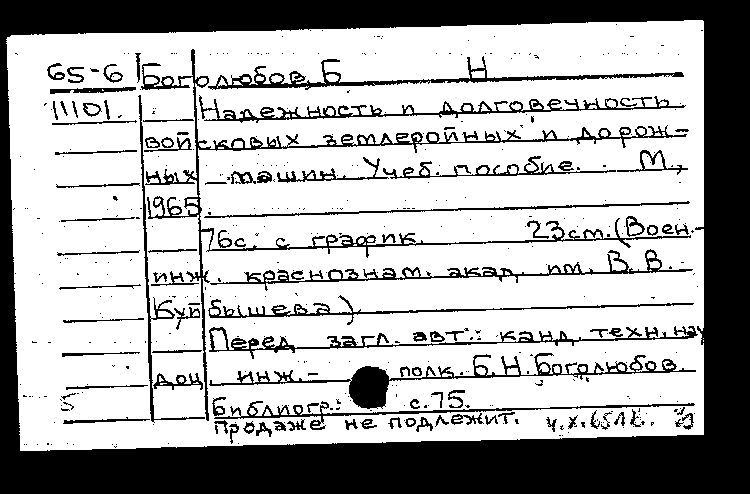 65-6 Боголюбов, Б Н
11101. Надежность и долговечность
войсковых землеройных и дорож-
ных машин. Учеб. пособие. М.,
1965.
76с. с график. 23см. (Воен.-
инж. краснознам. акад. им. В. В.
Куйбышева)
Перед загл. авт.: канд. техн. нау
доц. инж.- полк. Б. Н. Боголюбов.
5 Библиогр.: с. 75.
Продаже не подлежит.